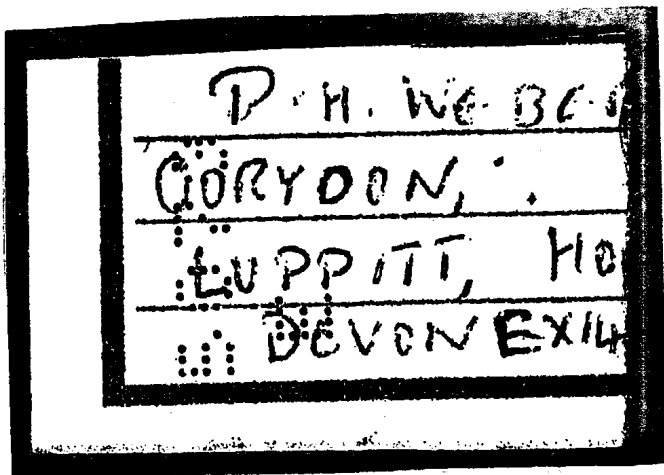 P. H. WEBE
CORYDON,
LUPPITT, HO
DEVON EX14